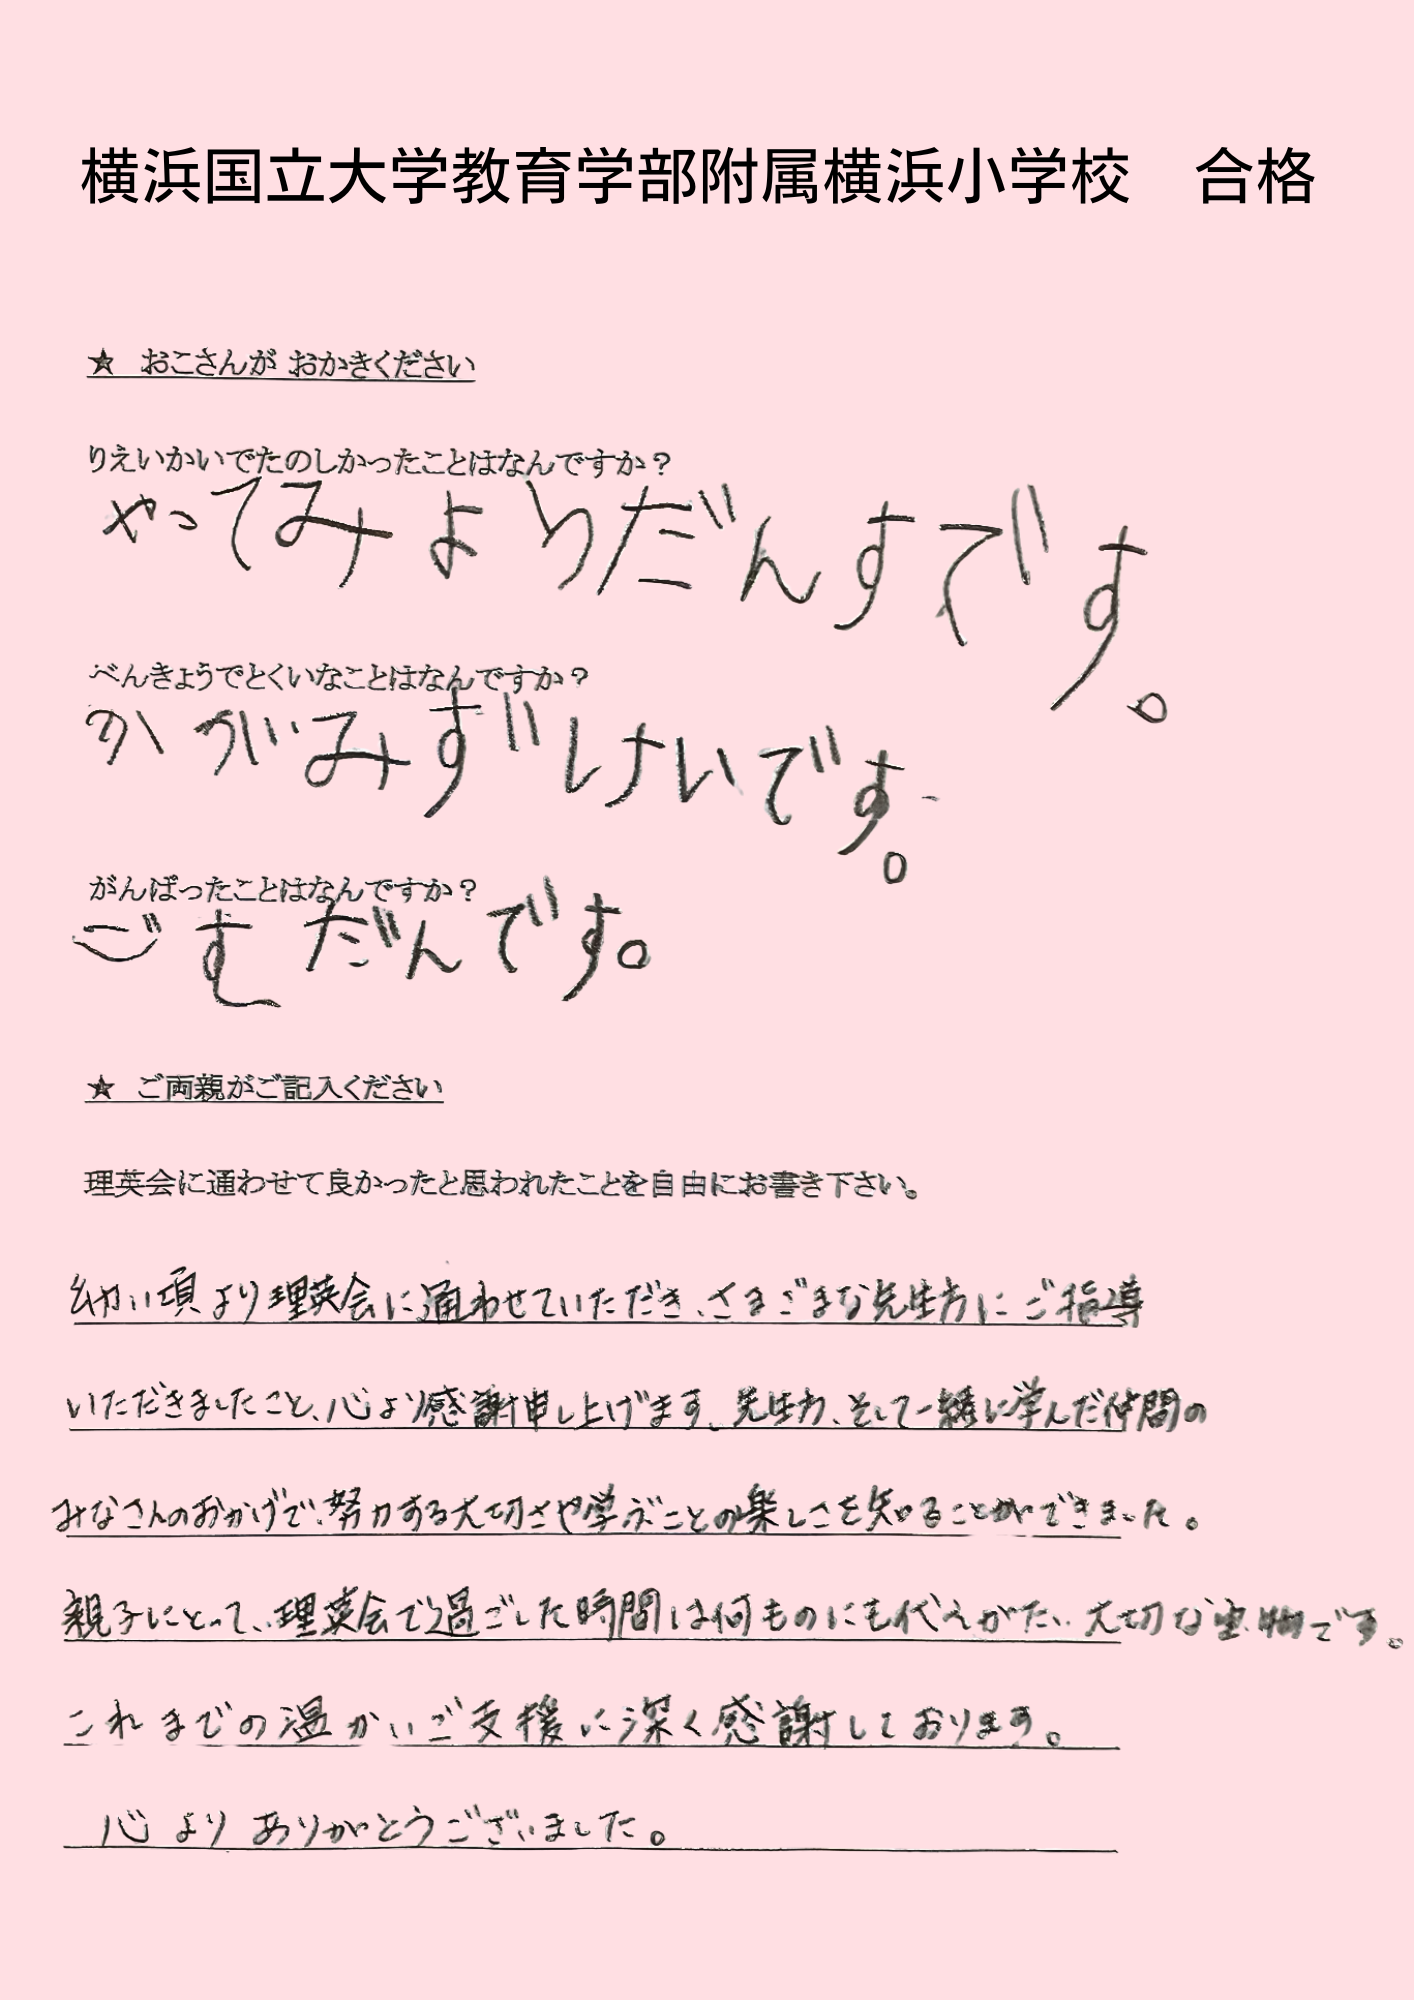 横浜国立大学教育学部附属横浜小学校　合格
★　おこさんが おかきください
りえいかいでたのしかったことはなんですか？
やってみよりだんすです。
べんきょうでとくいなことはなんですか？
かがみずしけいです。
がんばったことはなんですか？
ごむだんです。
★　ご両親がご記入ください
理英会に通わせて良かったと思われたことを自由にお書き下さい。
幼い頃より理英会に通わせていただき、さまざまな先生方にご指導
いただきましたこと、心より感謝申し上げます。先生方、そして一緒に学んだ仲間の
みなさんのおかげで、努力する大切さや学ぶことの楽しさを知ることができました。
親子にとって、理英会で過ごした時間は何ものにも代えがたい、大切な宝物です。
これまでの温かいご支援に深く感謝しております。
心よりありがとうございました。